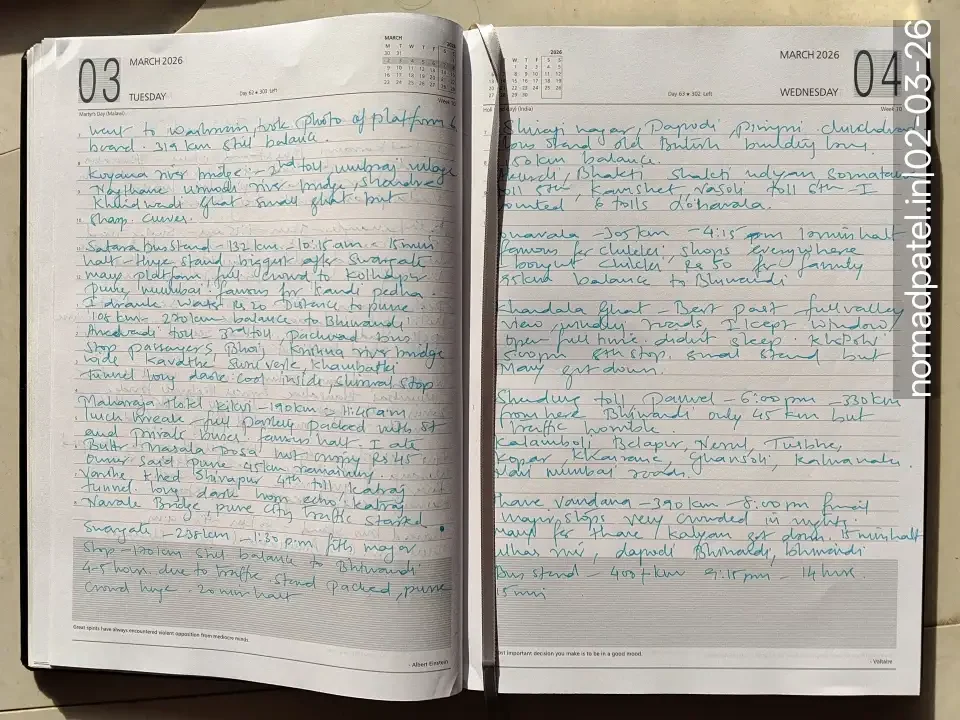 03
MARCH 2026
TUESDAY
Day 62 ★ 303 Left
MARCH
2026
Martyr's Day (Malawi)
. went to washroom, took photo of platform 6
board. 319 km still balance.
. Koyana river bridge - 2nd toll umbraj village
. Naythane urmodi river bridge, Shendre
Khindwadi Ghat small ghat but
sharp curves.
. Satara bus stand - 132 km - 10:15 am - 15 min
halt - Huge stand biggest after Swargate
. many platform, full crowd to Kolhapur
Pune mumbai famous for Kandi pedha.
I drank water Rs 20 Distance to pune
108 km - 270 km balance to Bhiwandi
. Anewadi toll - 3rd toll, Pachwad bus
stop passengers Bhuij Krishna river bridge
wide, Kavathe Surur verle, Khambatki
tunnel long dark cool inside Shirwal stop
. Maharaja Hotel Kikvi - 190 km - 11:45 am
lunch break - full parking packed with ST
and private buses, famous halt. I ate
. Butter masala Dosa hot crispy Rs 45
Owner said Pune 45 km remaining
. Varshe Khed Shivapur 4th toll, Katraj
tunnel long dark horn echo, Katraj
. Navale Bridge, pune city traffic started
Swargate - 235 km - 1:30 p.m. fifth major
stop - 170 km still balance to Bhiwandi
4-5 hours due to traffic stand packed, pune
crowd huge. 20 min halt
Great spirits have always encountered violent opposition from mediocre minds.
- Albert Einstein
MARCH 2026
04
WEDNESDAY
2026
Day 63 ★ 302 Left
(India)
Week 10
Shivaji nagar, Dapodi, pimpri chinchdwar
bus stand old British building bus.
150 km balance.
Bhakti shakti udyan, Somatane
toll 5th, Kamshet, vasoli toll 6th - I
counted, 6 tolls
- 305 km - 4:15 pm 10 min halt
famous for chikki shops everywhere
I bought chikki Rs 50 for family
95 km balance to Bhiwandi
Khandala Ghat - Best part - full valley
view, windy roads, I kept window
open full time, didn't sleep. Khopoli
5:00 pm 8th stop, small stand but
Many got down.
Shedung toll, Panvel - 6:00 pm - 330 km
from here Bhiwandi only 45 km but
traffic horrible.
Kalamboli Belapur, Nerul, Turbhe,
Kopar Khairane, Ghansoli, Kalwa naka.
Navi mumbai roads.
Thane Vandana - 390 km - 8:00 pm final
major stops very crowded in nights.
many for thane / kalyan got down 15 min halt
ulhas river, dapodi Bhiwandi, bhiwandi
Bus stand - 407 km 9:15 pm - 14 hrs.
15 min
important decision you make is to be in a good mood.
- Voltaire
nomadpatel.in|02-03-26